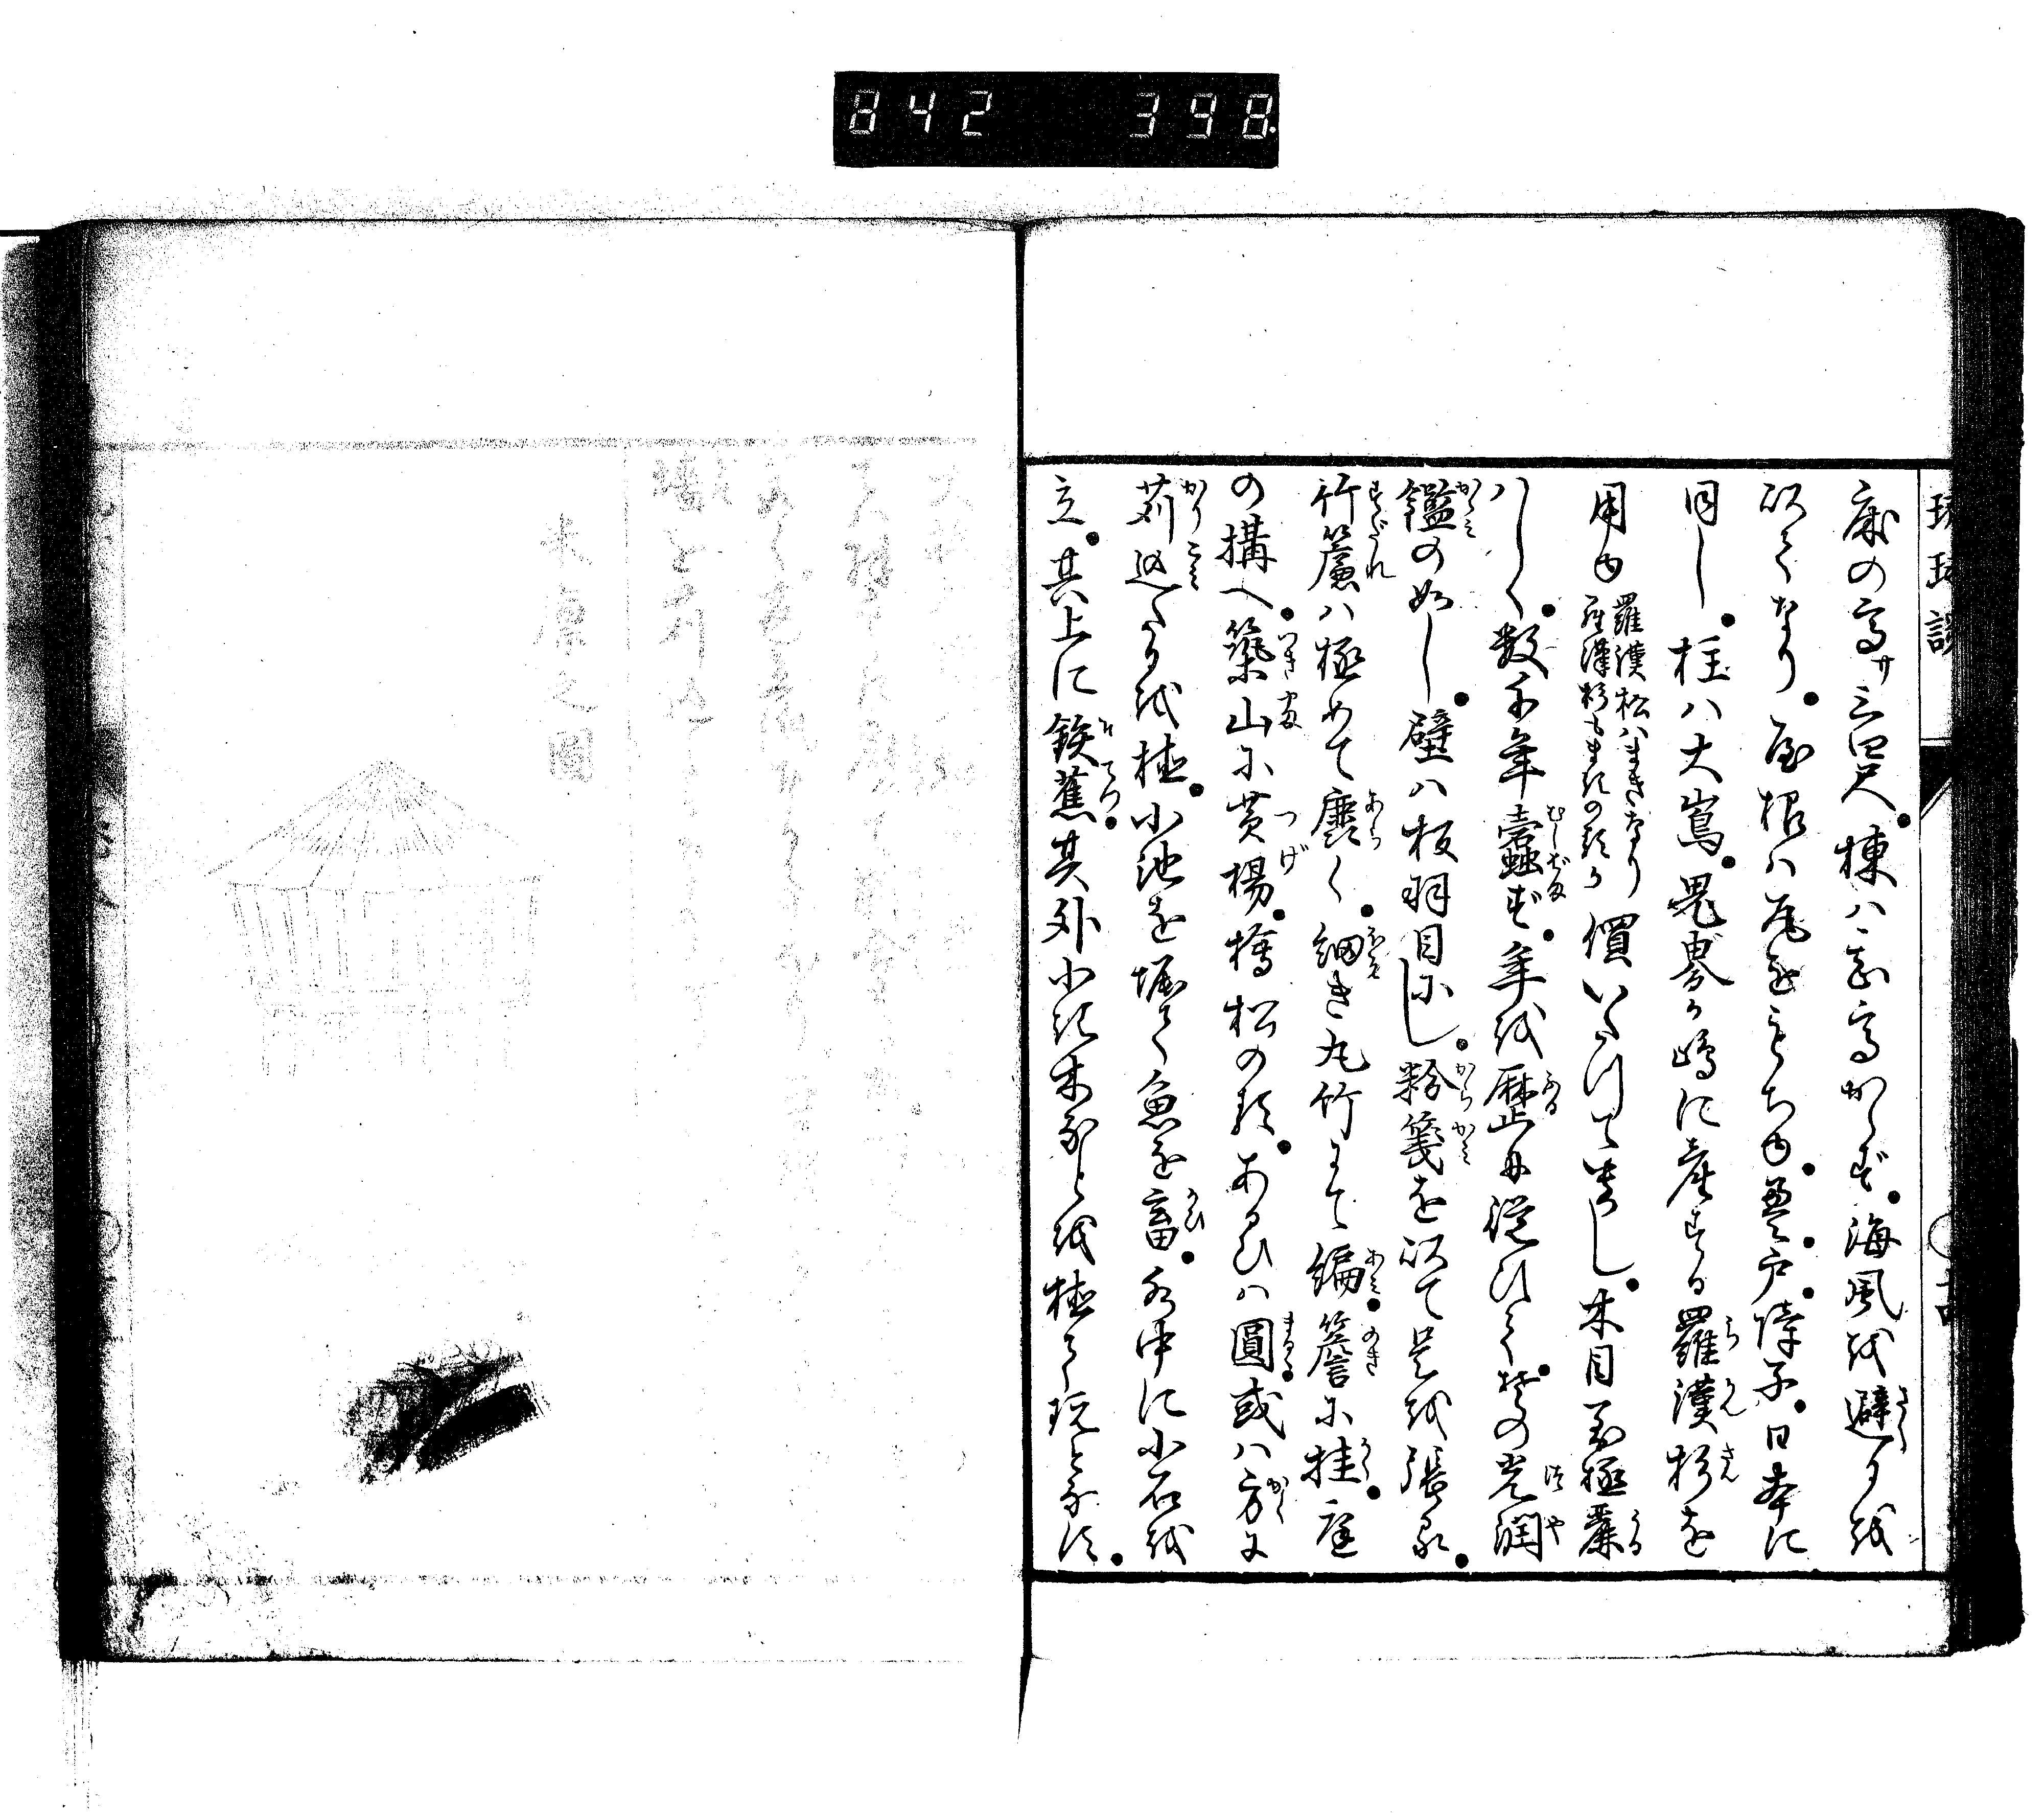 842 398
琉球談
床の高サ三四尺。棟ハ甚高からず。海風を避るを
以てなり。屋根ハ瓦をもちゆ。畳。戸。障子。日本に
同し。柱ハ大嶌。鬼界が嶋に産する羅漢杉を
用ゆ
羅漢松ハまきなり
羅漢杉もまきの類か
價いたつて貴し。木目至極麗
ハしく。数千年蠹ず。年を歴に従ひて。其の光潤
鑑の如し。壁ハ板羽目にし。粉箋を以て是を張る。
竹簾ハ極めて麁く。細き丸竹にて編。簷に挂。庭
の搆へ。築山に黄楊。樽松の類。あるひハ圓。或ハ方に
苅込たるを植。小池を堀て魚を畜。水中に小石を
立。其上に鉄蕉。其外小き木などを植て玩となす。
米廩之圖